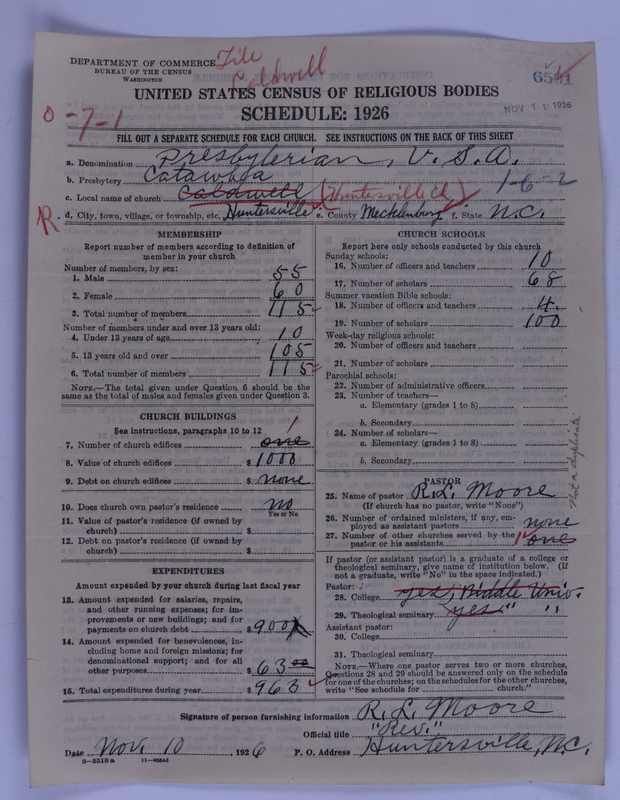 DEPARTMENT OF COMMERCE
BUREAU OF THE CENSUS
WASHINGTON
File
Caldwell
NOV 11 1926
UNITED STATES CENSUS OF RELIGIOUS BODIES
SCHEDULE: 1926
0-7-1
FILL OUT A SEPARATE SCHEDULE FOR EACH CHURCH. SEE INSTRUCTIONS ON THE BACK OF THIS SHEET
a. Denomination Presbyterian, U.S.A.
b. Presbytery Catawba
c. Local name of church Caldwell (Huntersville Ch.) 1-6-2
R
d. City, town, village, or township, etc. Huntersville e. County Mecklenburg f. State N.C.
MEMBERSHIP
Report number of members according to definition of member in your church
Number of members, by sex:
1. Male 55
2. Female 60
3. Total number of members 115
Number of members under and over 13 years old:
4. Under 13 years of age 10
5. 13 years old and over 105
6. Total number of members 115
NOTE.—The total given under Question 6 should be the same as the total of males and females given under Question 3.
CHURCH BUILDINGS
See instructions, paragraphs 10 to 12
7. Number of church edifices one 1
8. Value of church edifices $ 1000
9. Debt on church edifices $ none
10. Does church own pastor's residence no
Yes or No
11. Value of pastor's residence (if owned by church) $
12. Debt on pastor's residence (if owned by church) $
EXPENDITURES
Amount expended by your church during last fiscal year
13. Amount expended for salaries, repairs, and other running expenses; for improvements or new buildings; and for payments on church debt $ 900
14. Amount expended for benevolences, including home and foreign missions; for denominational support; and for all other purposes $ 63.00
15. Total expenditures during year $ 963
CHURCH SCHOOLS
Report here only schools conducted by this church
Sunday schools:
16. Number of officers and teachers 10
17. Number of scholars 68
Summer vacation Bible schools:
18. Number of officers and teachers 4
19. Number of scholars 100
Week-day religious schools:
20. Number of officers and teachers
21. Number of scholars
Parochial schools:
22. Number of administrative officers
23. Number of teachers—
a. Elementary (grades 1 to 8)
b. Secondary
24. Number of scholars—
a. Elementary (grades 1 to 8)
b. Secondary
Not a duplicate
PASTOR
25. Name of pastor R.L. Moore
(If church has no pastor, write "None")
26. Number of ordained ministers, if any, employed as assistant pastors none
27. Number of other churches served by the pastor or his assistants 1 one
If pastor (or assistant pastor) is a graduate of a college or theological seminary, give name of institution below. (If not a graduate, write "No" in the space indicated.)
Pastor:
28. College yes, Biddle Univ.
29. Theological seminary yes " "
Assistant pastor:
30. College
31. Theological seminary
NOTE.—Where one pastor serves two or more churches, Questions 28 and 29 should be answered only on the schedule for one of the churches; on the schedules for the other churches, write "See schedule for ______ church."
Signature of person furnishing information R. L. Moore
Official title "Rev."
Date Nov. 10, 1926 P. O. Address Huntersville, N.C.
8—5518 a